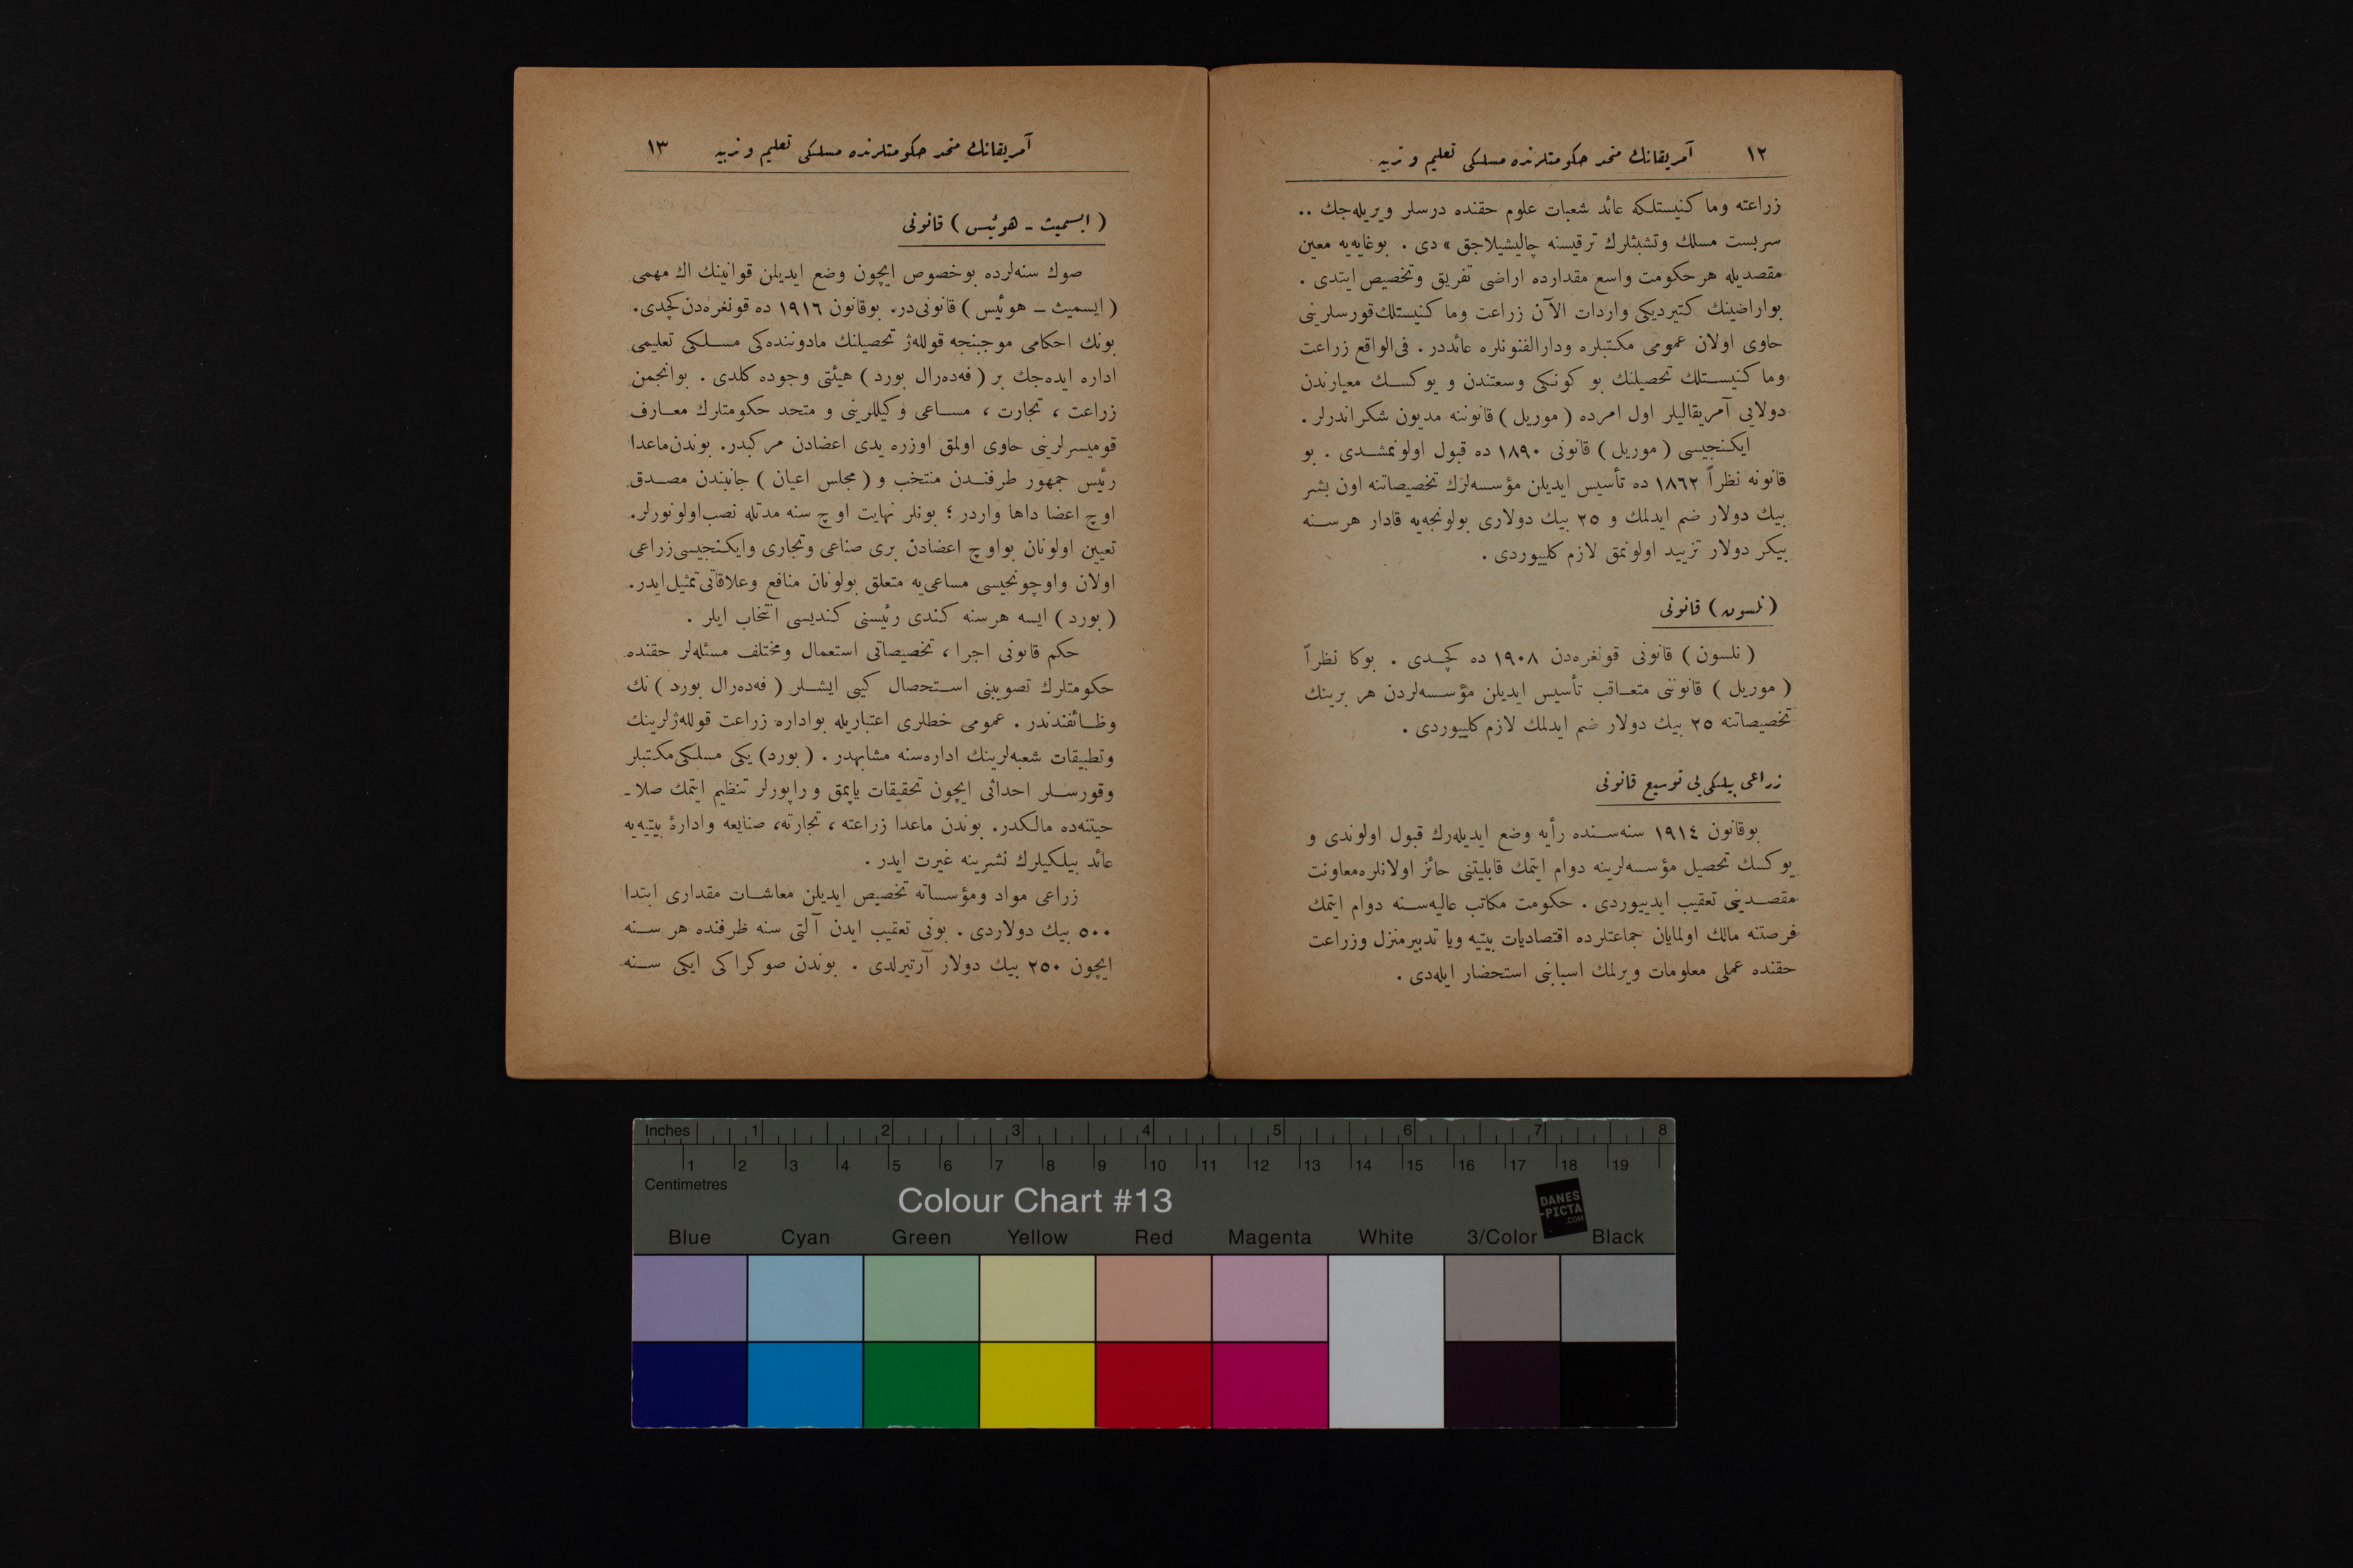 ١٢ آمریقانك متحد حكومتلرنده مسلكی تعلیم و تربیه
زراعته وما كنیستلكه عائد شعبات علوم حقنده درسلر ویریله‌جك ..
سربست مسلك وتشبثلرك ترقیسنه چالیشیلاجق » دی . بوغایه‌یه معین
مقصدیله هرحكومت واسع مقدارده اراضی تفریق وتخصیص ایتدی .
بواراضینك كتیردیكی واردات الآن زراعت وما كنیستلك قورسلرینی
حاوی اولان عمومی مكتبلره ودارالفنونلره عائددر . فی‌الواقع زراعت
وما كنیستلك تحصیلنك بو كونكی وسعتندن و یوكسك معیارندن
دولایی آمریقالیلر اول امرده ( موریل ) قانوننه مدیون شكراندرلر .
ایكنجیسی ( موریل ) قانونی ١٨٩٠ ده قبول اولونمشدی . بو
قانونه نظراً ١٨٦٢ ده تأسیس ایدیلن مؤسسه‌لرك تخصیصاتنه اون بشر
بیك دولار ضم ایدلمك و ٢٥ بیك دولاری بولونجه‌یه قادار هرسنه
بیكر دولار تزیید اولونمق لازم كلییوردی .
( نلسون ) قانونی
( نلسون ) قانونی قونغره‌دن ١٩٠٨ ده كچدی . بوكا نظراً
( موریل ) قانوننی متعاقب تأسیس ایدیلن مؤسسه‌لردن هر برینك
تخصیصاتنه ٢٥ بیك دولار ضم ایدلمك لازم كلییوردی .
زراعی بیلكی‌یی توسیع قانونی
بوقانون ١٩١٤ سنه‌سنده رأیه وضع ایدیله‌رك قبول اولوندی و
یوكسك تحصیل مؤسسه‌لرینه دوام ایتمك قابلیتنی حائز اولانلره معاونت
مقصدینی تعقیب ایدییوردی . حكومت مكاتب عالیه‌سنه دوام ایتمك
فرصتنه مالك اولمایان جماعتلرده اقتصادیات بیتیه ویا تدبیرمنزل وزراعت
حقنده عملی معلومات ویرلمك اسبابنی استحضار ایله‌دی .
آمریقانك متحد حكومتلرنده مسلكی تعلیم و تربیه ١٣
( ایسمیث - هوئیس ) قانونی
صوك سنه‌لرده بوخصوص ایچون وضع ایدیلن قوانینك اك مهمی
( ایسمیث – هوئیس ) قانونی‌در. بوقانون ١٩١٦ ده قونغره‌دن كچدی.
بونك احكامی موجبنجه قولله‌ژ تحصیلنك مادوننده‌كی مسلكی تعلیمی
اداره ایده‌جك بر ( فه‌ده‌رال بورد ) هیئتی وجوده كلدی . بوانجمن
زراعت ، تجارت ، مساعی وكیللرینی و متحد حكومتلرك معارف
قومیسرلرینی حاوی اولمق اوزره یدی اعضادن مركبدر. بوندن‌ماعدا
رئیس جمهور طرفندن منتخب و ( مجلس اعیان ) جانبندن مصدق
اوچ اعضا داها واردر ؛ بونلر نهایت اوچ سنه مدتله نصب‌اولونورلر.
تعیین اولونان بواوچ اعضادن بری صناعی وتجاری وایكنجیسی زراعی
اولان واوچونجیسی مساعی‌یه متعلق بولونان منافع وعلاقاتی تمثیل‌ایدر.
( بورد ) ایسه هرسنه كندی رئیسنی كندیسی انتخاب ایلر .
حكم قانونی اجرا ، تخصیصاتی استعمال ومختلف مسئله‌لر حقنده
حكومتلرك تصویبنی استحصال كیبی ایشلر ( فه‌ده‌رال بورد ) نك
وظائفندندر . عمومی خطلری اعتباریله بواداره زراعت قولله‌ژلرینك
وتطبیقات شعبه‌لرینك اداره‌سنه مشابهدر . ( بورد ) یكی مسلكی‌مكتبلر
وقورسلر احداثی ایچون تحقیقات یاپمق و راپورلر تنظیم ایتمك صلا-
حیتنه‌ده مالكدر. بوندن ماعدا زراعته ، تجارته، صنایعه وادارهٔ بیتیه‌یه
عائد بیلكیلرك نشرینه غیرت ایدر .
زراعی مواد ومؤسساته تخصیص ایدیلن معاشات مقداری ابتدا
٥٠٠ بیك دولاردی . بونی تعقیب ایدن آلتی سنه ظرفنده هر سنه
ایچون ٢٥٠ بیك دولار آرتیرلدی . بوندن صوكراكی ایكی سنه
Inches 1 2 3 4 5 6 7 8
1 2 3 4 5 6 7 8 9 10 11 12 13 14 15 16 17 18 19
Centimetres
Colour Chart #13
DANES
-PICTA
.COM
Blue Cyan Green Yellow Red Magenta White 3/Color Black